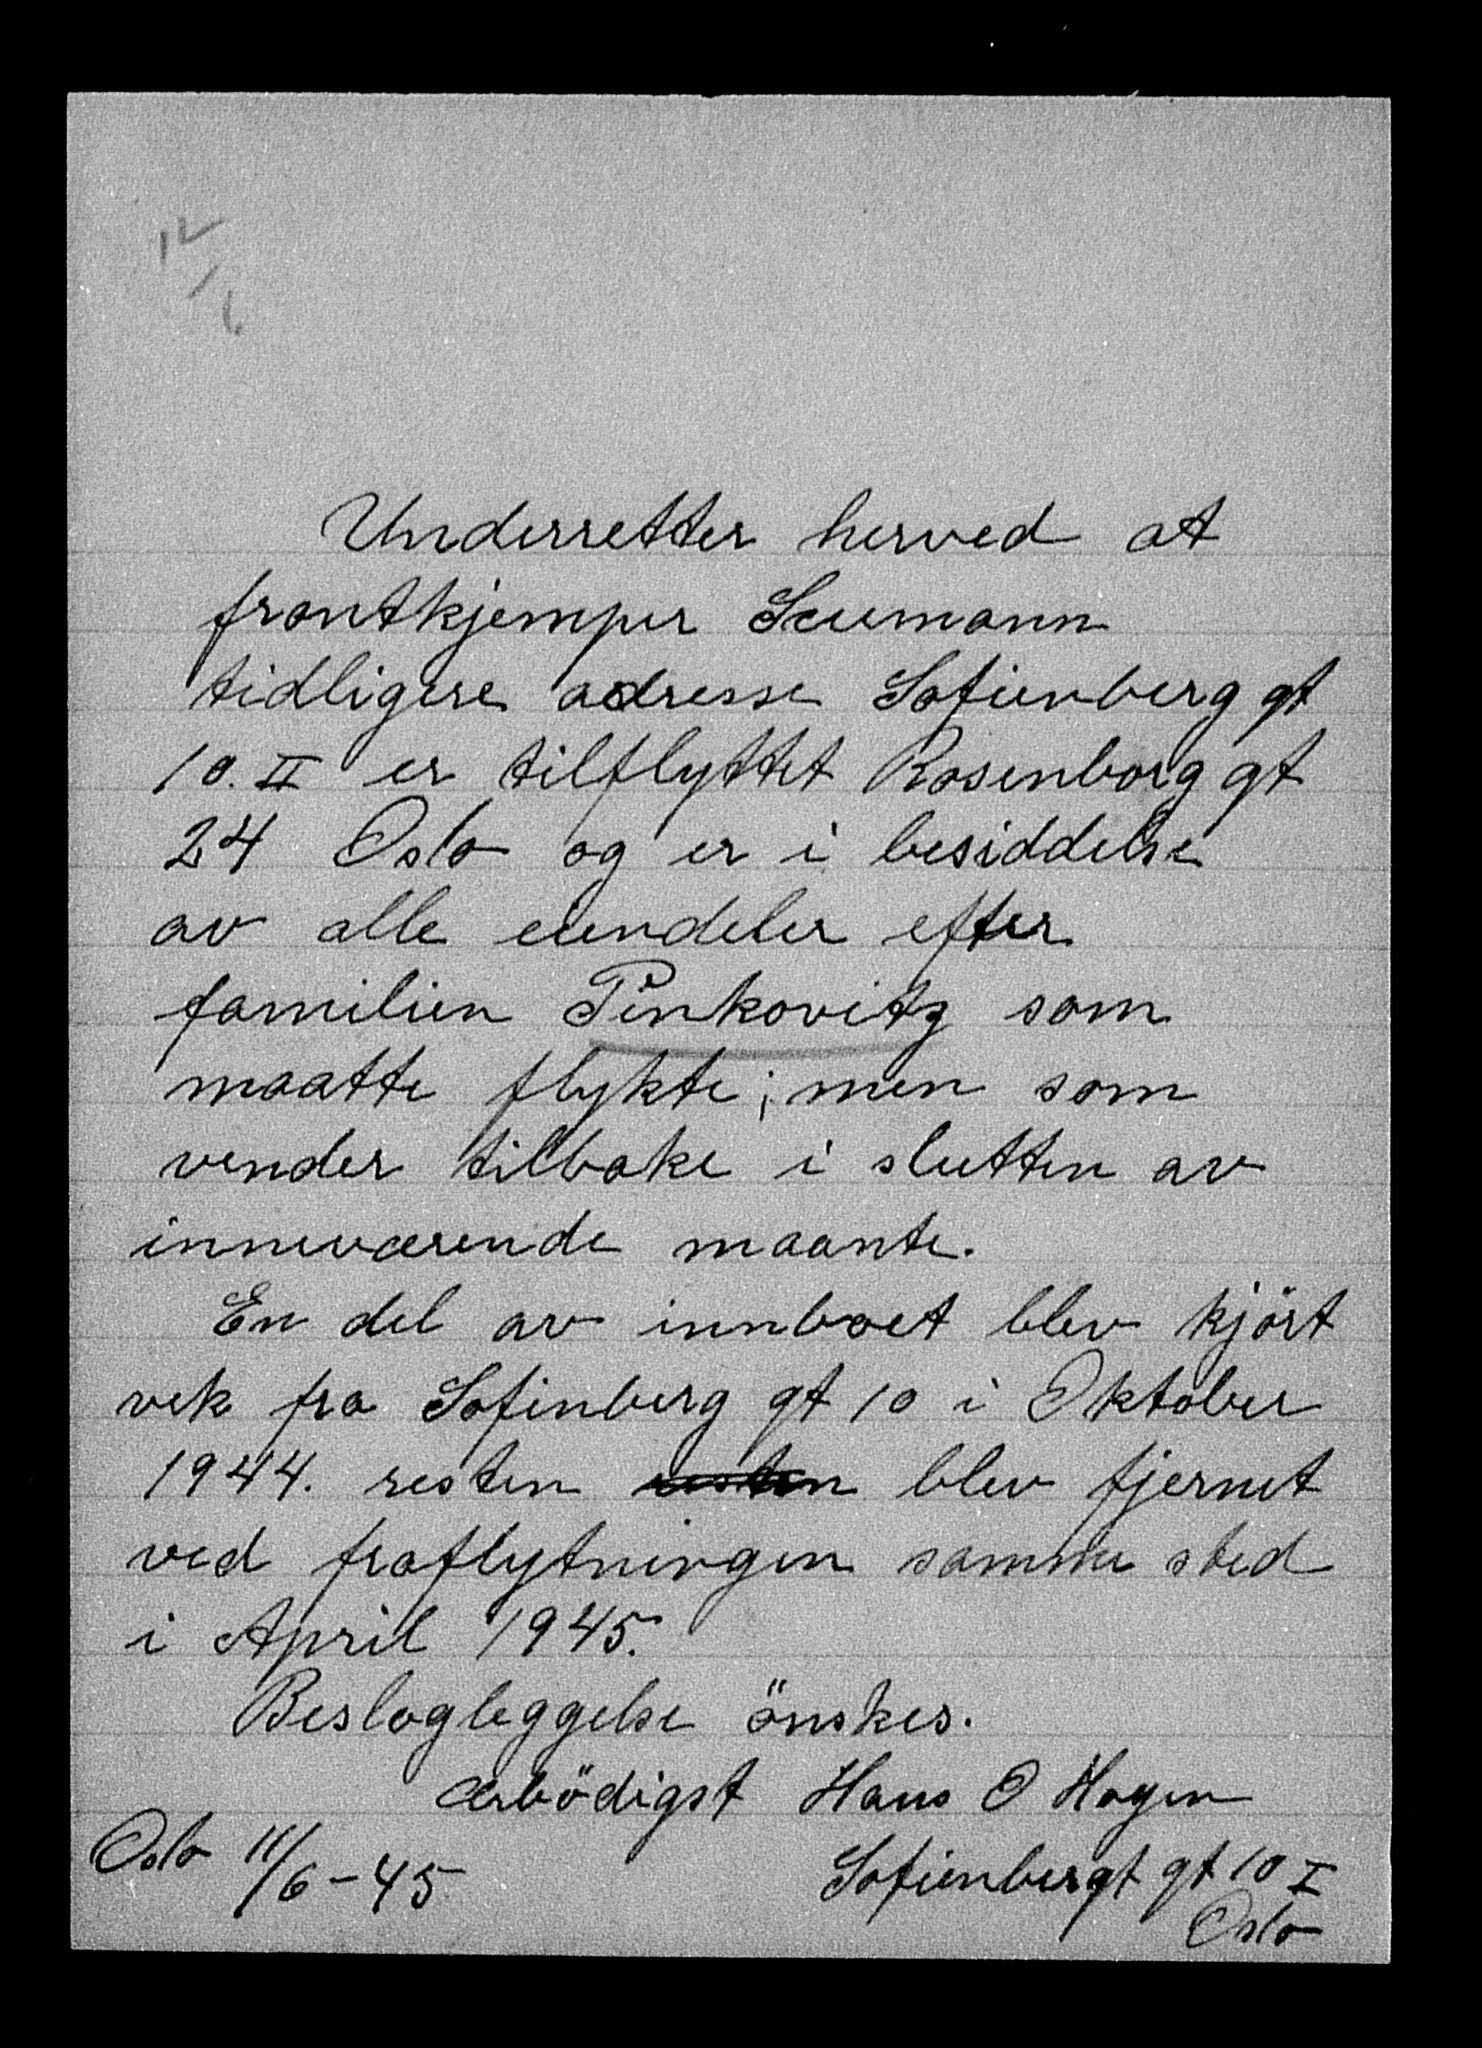 12
/
6
Underretter herved at
frontkjemper Seumann
tidligere adresse Sofienberg gt
10. II er tilflyttet Rosenborg gt
24 Oslo og er i besiddelse
av alle eiendeler efter
familien Pinkovitz som
maatte flykte; men som
vender tilbake i slutten av
inneværende maante.
En del av innboet blev kjört
vek fra Sofinberg gt 10 i Oktober
1944. resten resten blev fjernet
ved fraflytningen samme sted
i April 1945.
Beslagleggelse önskes.
ærbödigst Hans O Hagen
Oslo 11/6-45
Sofienbergt gt 10 I
Oslo